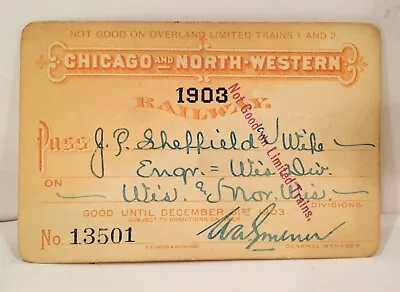 NOT GOOD ON OVERLAND LIMITED TRAINS 1 AND 2.
CHICAGO AND NORTH-WESTERN
1903
RAILWAY.
Pass J. P. Sheffield & Wife
Engr = Wis Div.
ON Wis. & Nor. Wis. DIVISIONS
GOOD UNTIL DECEMBER 31ST 1903
SUBJECT TO CONDITIONS ON BACK
No. 13501
GENERAL MANAGER
Not Good on Limited Trains.